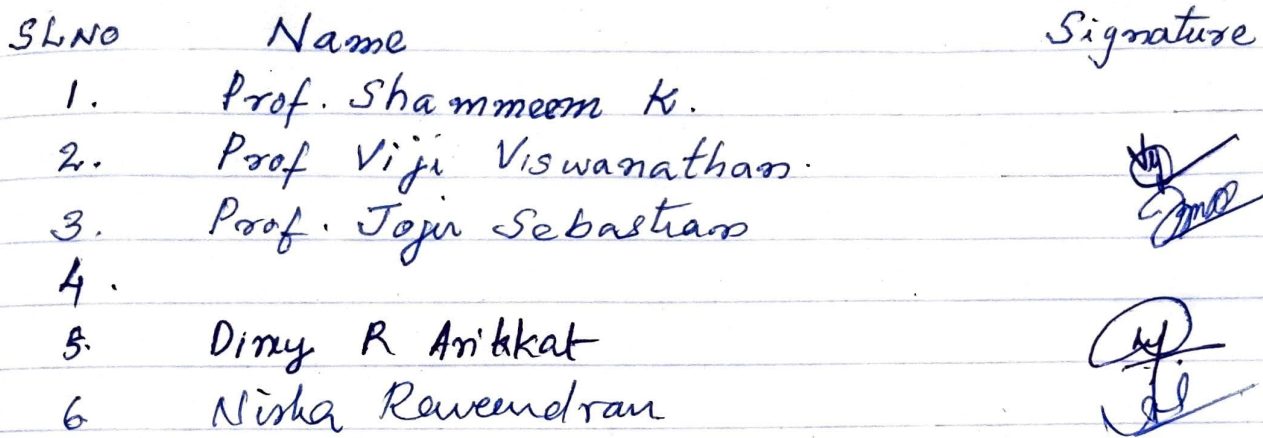 SL NO Name Signature
1. Prof. Shammeem K.
2. Prof Viji Viswanathan.
3. Prof. Jojin Sebastian
4.
5. Dincy R Arikkat
6 Nisha Raveendran